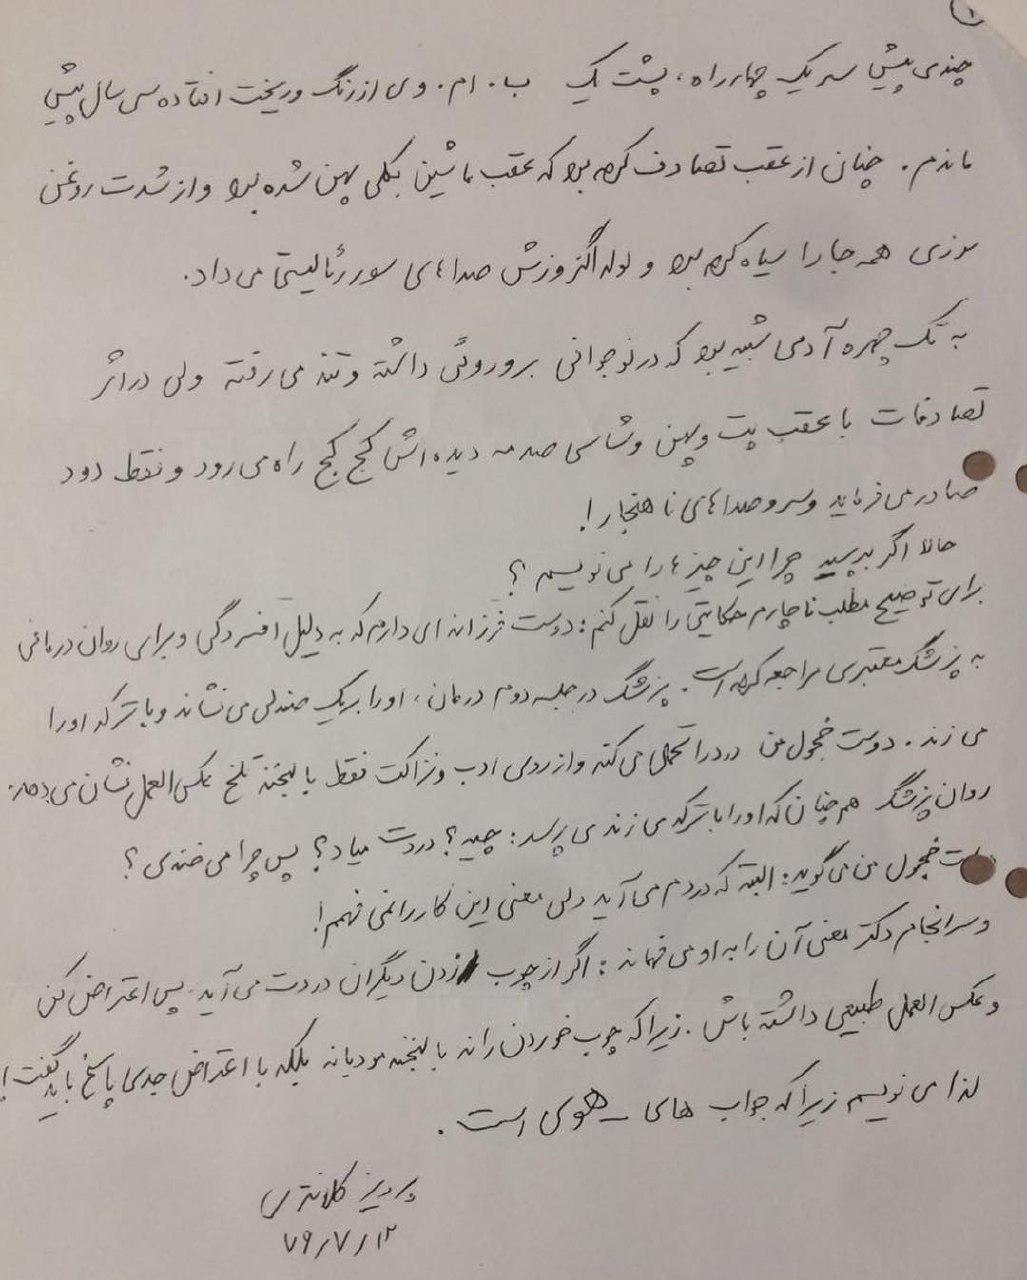 ۱
چندی پیش سر یک چهارراه، پشت یک ب. ام. و ی از رنگ و ریخت افتاده سی سال پیش
ماندم. چنان از عقب تصادف کرده بود که عقب ماشین بکلی پهن شده بود و از شدت روغن
سوزی همه جا را سیاه کرده بود و لوله اگزوزش صداهای سوررئالیستی می داد.
به تک چهره آدمی شبیه بود که در نوجوانی بر و روئی داشته و تند می رفته ولی در اثر
تصادفات با عقب پت و پهن و شاسی صدمه دیده اش کج کج راه می رود و فقط دود
صادر می فرماید و سر و صداهای ناهنجار!
حالا اگر بپرسید چرا این چیزها را می نویسم؟
برای توضیح مطلب ناچارم حکایتی را نقل کنم: دوست فرزانه ای دارم که به دلیل افسردگی و برای روان درمانی
به پزشک معتبری مراجعه کرده است. پزشک در جلسه دوم درمان، او را بر یک صندلی می نشاند و با ترکه او را
می زند. دوست خجول من درد را تحمل می کند و از روی ادب و نزاکت فقط با لبخند تلخ عکس العمل نشان می دهد.
روان پزشک هم چنان که او را با ترکه می زند می پرسد: چیه؟ دردت میاد؟ پس چرا می خندی؟
دوست خجول من می گوید: البته که دردم می آید ولی معنی این کار را نمی فهمم!
و سرانجام دکتر معنی آن را به او می فهماند: اگر از چوب زدن دیگران دردت می آید. پس اعتراض کن
و عکس العمل طبیعی داشته باش. زیرا که چوب خوردن را نه با لبخند مودبانه بلکه با اعتراض جدی پاسخ باید گفت!
لذا می نویسم زیرا که جواب های _ هوی است.
پرویز کلانتری
۷۹/۷/۱۲